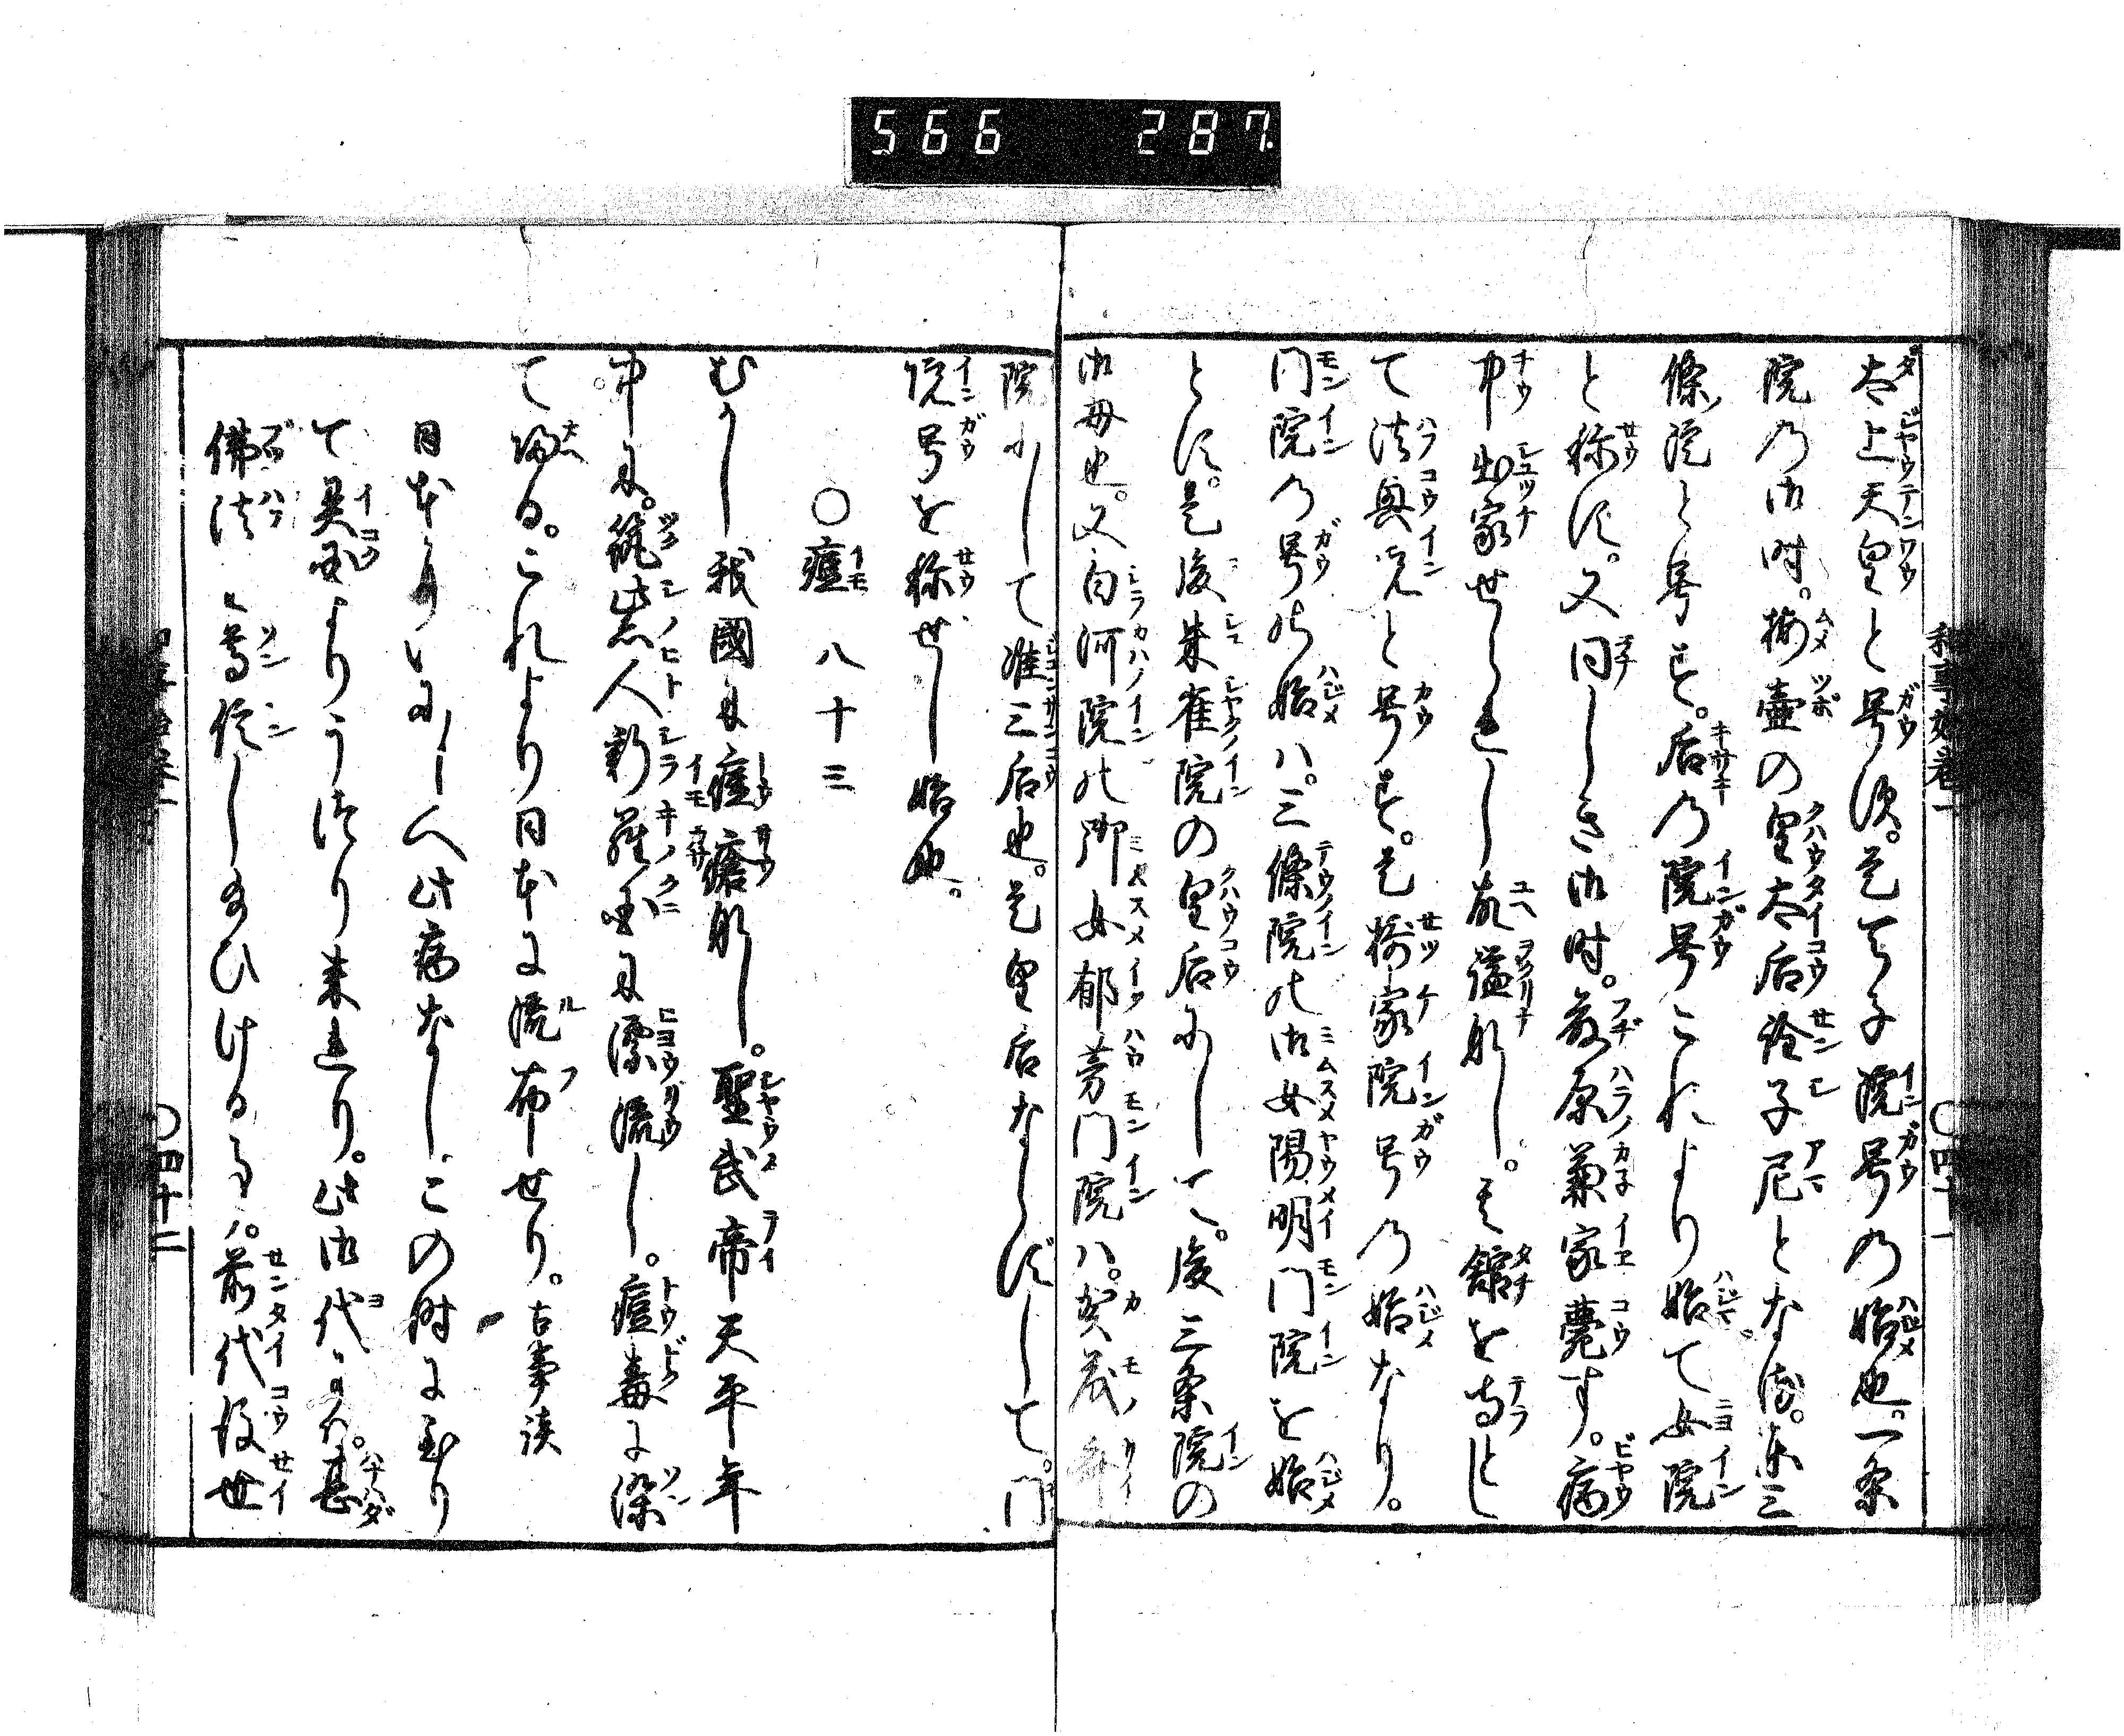 566 287.
太上天皇と号す。是天子院号の始也。一条
院の御時。梅壺の皇太后詮子尼となる。東三
條院と号す。后の院号これより始て女院
と称す。又同しき御時。藤原兼家薨す。病
中出家せられし故謚なし。其館を寺とし
て法興院と号す。是摂家院号の始なり。
門院の号の始ハ。三條院の御女陽明門院を始
とす。是後朱雀院の皇后にして。後三条院の
御母也。又白河院の御女郁芳門院ハ。賀茂斎
院にして准三后也。是皇后ならずして。門
院号を称せし始也。
〇痘 八十三
むかし我國に痘瘡なし。聖武帝天平年
中に。筑紫人新羅国に漂流し。痘毒に染
て帰る。これより日本に流布せり。古事談
日本にもいにしへ此病なし。この時に至り
て異国よりうつり来れり。此御代にハ。甚
佛法を尊信し給ひける事ハ。前代後世
〇四十二